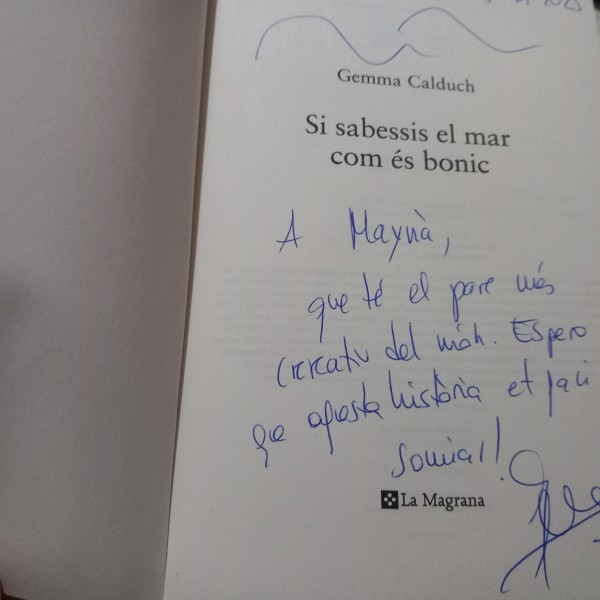 Gemma Calduch
Si sabessis el mar
com és bonic
A Maynà,
que té el pare més
creatiu del món. Espero
que aquesta història et faci
somiar!
La Magrana